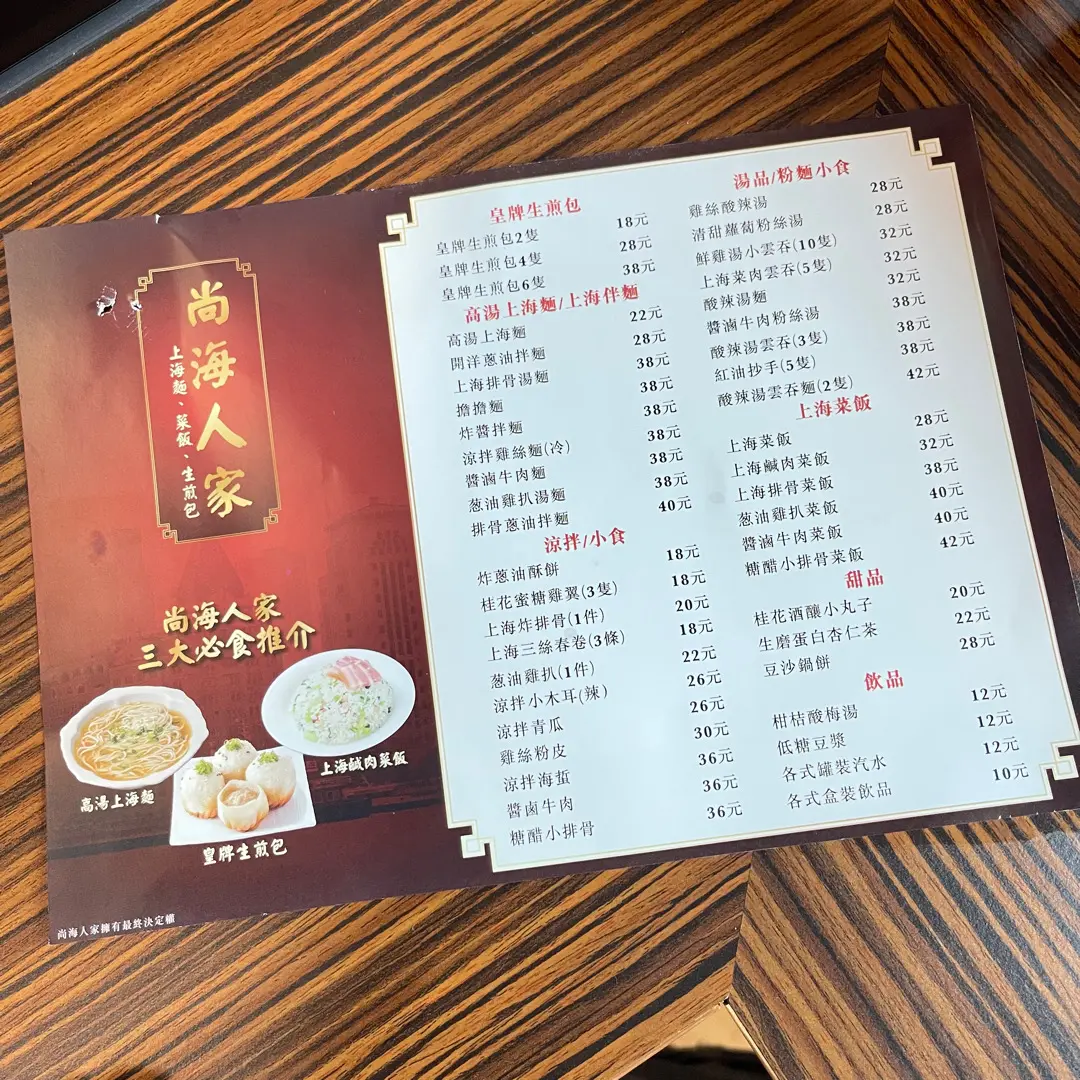 尚海人家
上海麵、菜飯、生煎包
尚海人家
三大必食推介
高湯上海麵
皇牌生煎包
上海鹹肉菜飯
尚海人家擁有最終決定權
皇牌生煎包
皇牌生煎包2隻 18元
皇牌生煎包4隻 28元
皇牌生煎包6隻 38元
高湯上海麵/上海伴麵
高湯上海麵 22元
開洋蔥油拌麵 28元
上海排骨湯麵 38元
擔擔麵 38元
炸醬拌麵 38元
涼拌雞絲麵(冷) 38元
醬滷牛肉麵 38元
葱油雞扒湯麵 38元
排骨蔥油拌麵 40元
涼拌/小食
炸蔥油酥餅 18元
桂花蜜糖雞翼(3隻) 18元
上海炸排骨(1件) 20元
上海三絲春卷(3條) 18元
葱油雞扒(1件) 22元
涼拌小木耳(辣) 26元
涼拌青瓜 26元
雞絲粉皮 30元
涼拌海蜇 36元
醬鹵牛肉 36元
糖醋小排骨 36元
湯品/粉麵小食
雞絲酸辣湯 28元
清甜蘿蔔粉絲湯 28元
鮮雞湯小雲吞(10隻) 32元
上海菜肉雲吞(5隻) 32元
酸辣湯麵 32元
醬滷牛肉粉絲湯 38元
酸辣湯雲吞(3隻) 38元
紅油抄手(5隻) 38元
酸辣湯雲吞麵(2隻) 42元
上海菜飯
上海菜飯 28元
上海鹹肉菜飯 32元
上海排骨菜飯 38元
葱油雞扒菜飯 40元
醬滷牛肉菜飯 40元
糖醋小排骨菜飯 42元
甜品
桂花酒釀小丸子 20元
生磨蛋白杏仁茶 22元
豆沙鍋餅 28元
飲品
柑桔酸梅湯 12元
低糖豆漿 12元
各式罐裝汽水 12元
各式盒裝飲品 10元